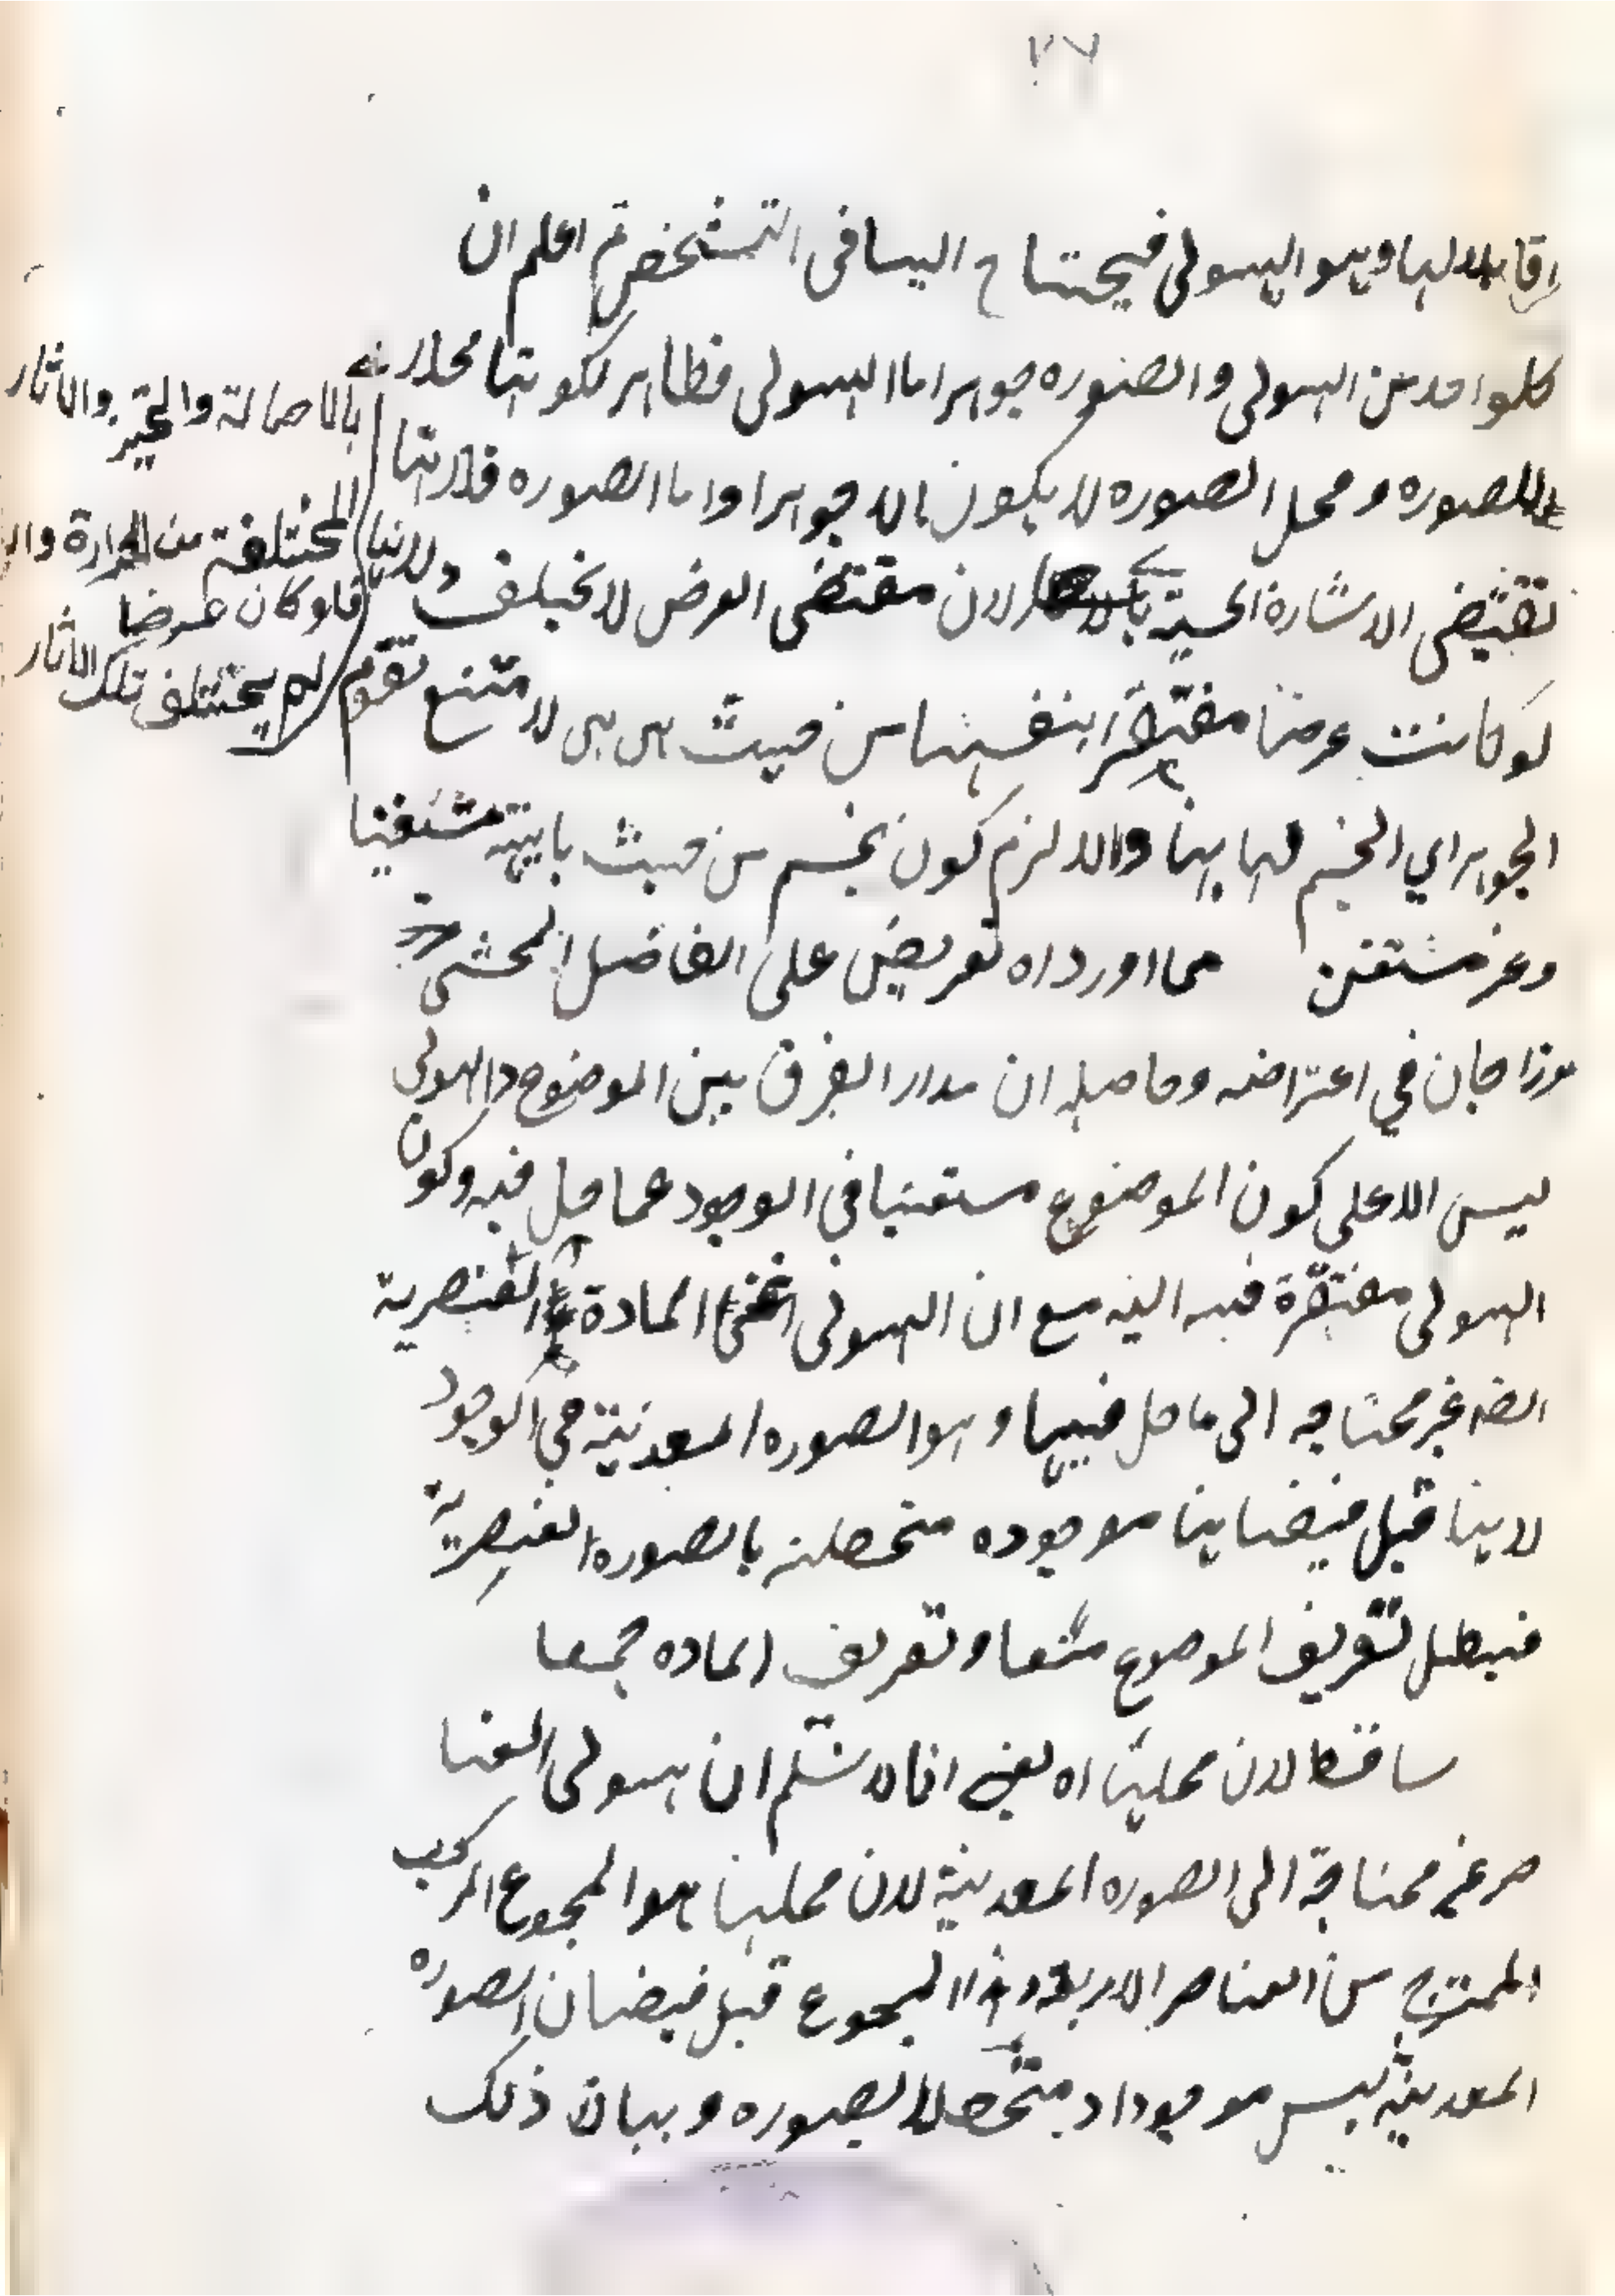 ٢٦
وقابلا لها وهو الهيولى فيحتاج اليها فى التشخص ثم اعلم ان
كلواحد من الهيولى والصوره جوهر اما الهيولى فظاهر لكونها محلا
للصوره ومحل الصوره لا يكون الا جوهرا واما الصوره فلانها
تقتضى الاشارة الحسية لان مقتضى العرض لا يختلف ولانها
لو كانت عرضا مفتقرا بنفسها من حيث هى هى لامتنع تقوم
الجوهر اي الجسم لها بها والا لزم كون الجسم من حيث ماهيته مستغنيا
وغير مستغن مما اورد اه تعريض على الفاضل المحشى
مرزا جان في اعتراضه وحاصله ان مدار الفرق بين الموضوع والهيولى
ليس الا على كون الموضوع مستغنيا في الوجود عما حل فيه وكون
الهيولى مفتقرة فيه اليه مع ان الهيولى اعنى المادة العنصرية
ايضا غير محتاجه الى ما حل فيها وهو الصوره المعدنية في الوجود
لانها قبل فيضانها موجوده متحصلة بالصوره العنصرية
فيبطل تعريف الموضوع منعا وتعريف الماده جمعا
ساقط لان محلها اه يعني انا لا نسلم ان هيولى العنا
صر غير محتاجة الى الصوره المعدنية لان محلها هو المجموع المركب
الممتزج من العناصر الاربعة وهذا المجموع قبل فيضان الصوره
المعدنية ليس موجودا ومتحصلا بالصوره وبيان ذلك
بالاصالة والتحيز والاثار
المختلفة من الحرارة
فلو كان عرضا
لم يختلف تلك الاثار